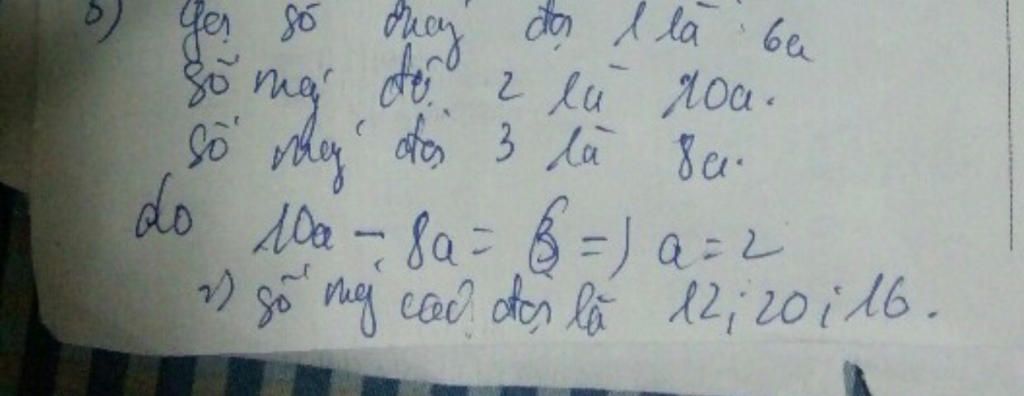 3) Gọi số máy đội 1 là 6a
Số máy đội 2 là 10a.
Số máy đội 3 là 8a.
do 10a - 8a = => a = 2
=> số máy các đội là 12; 20; 16.